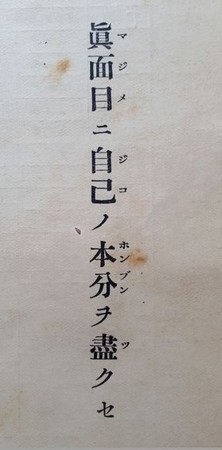 眞面目ニ自己ノ本分ヲ盡クセ
マジメ ジコ ホンブン ツ